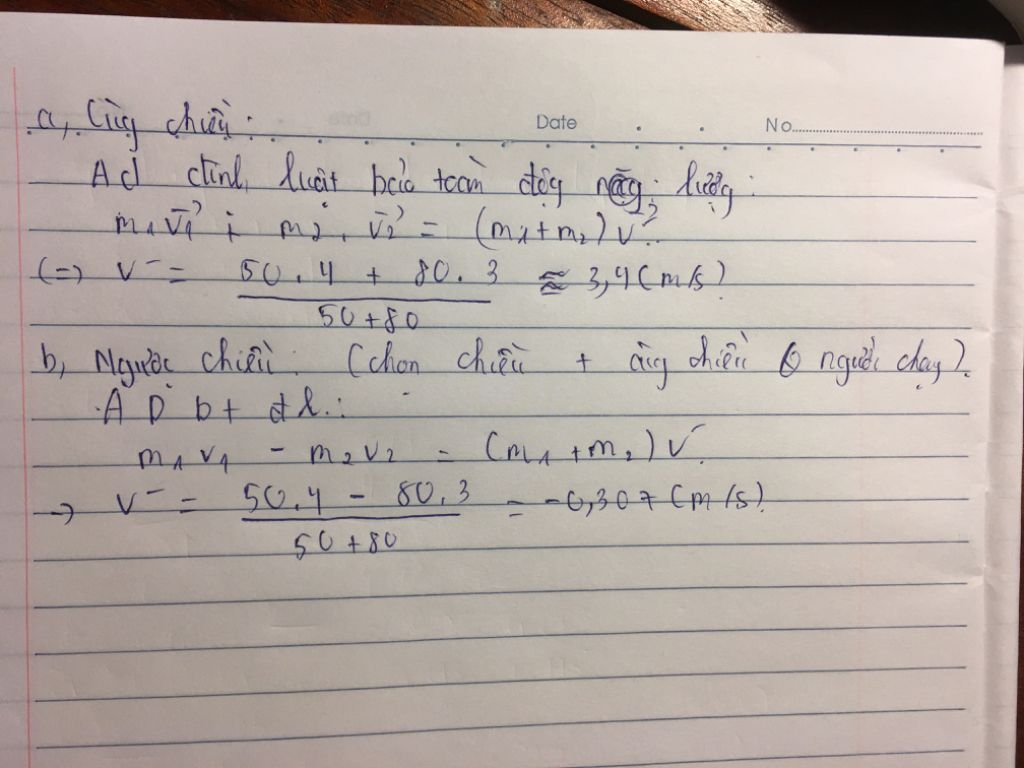 Date No.
a, Cùng chiều :
Ad định luật bảo toàn động lượng :
m₁v₁⃗ + m₂. v₂⃗ = (m₁+m₂) v⃗.
(=) v = (50.4 + 80.3)/(50+80) ≈ 3,4 (m/s)
b, Ngược chiều : (chọn chiều + cùng chiều người chạy).
AD bt đl :
m₁v₁ - m₂v₂ = (m₁+m₂) v.
→ v = (50.4 - 80.3)/(50+80) = -0,307 (m/s).